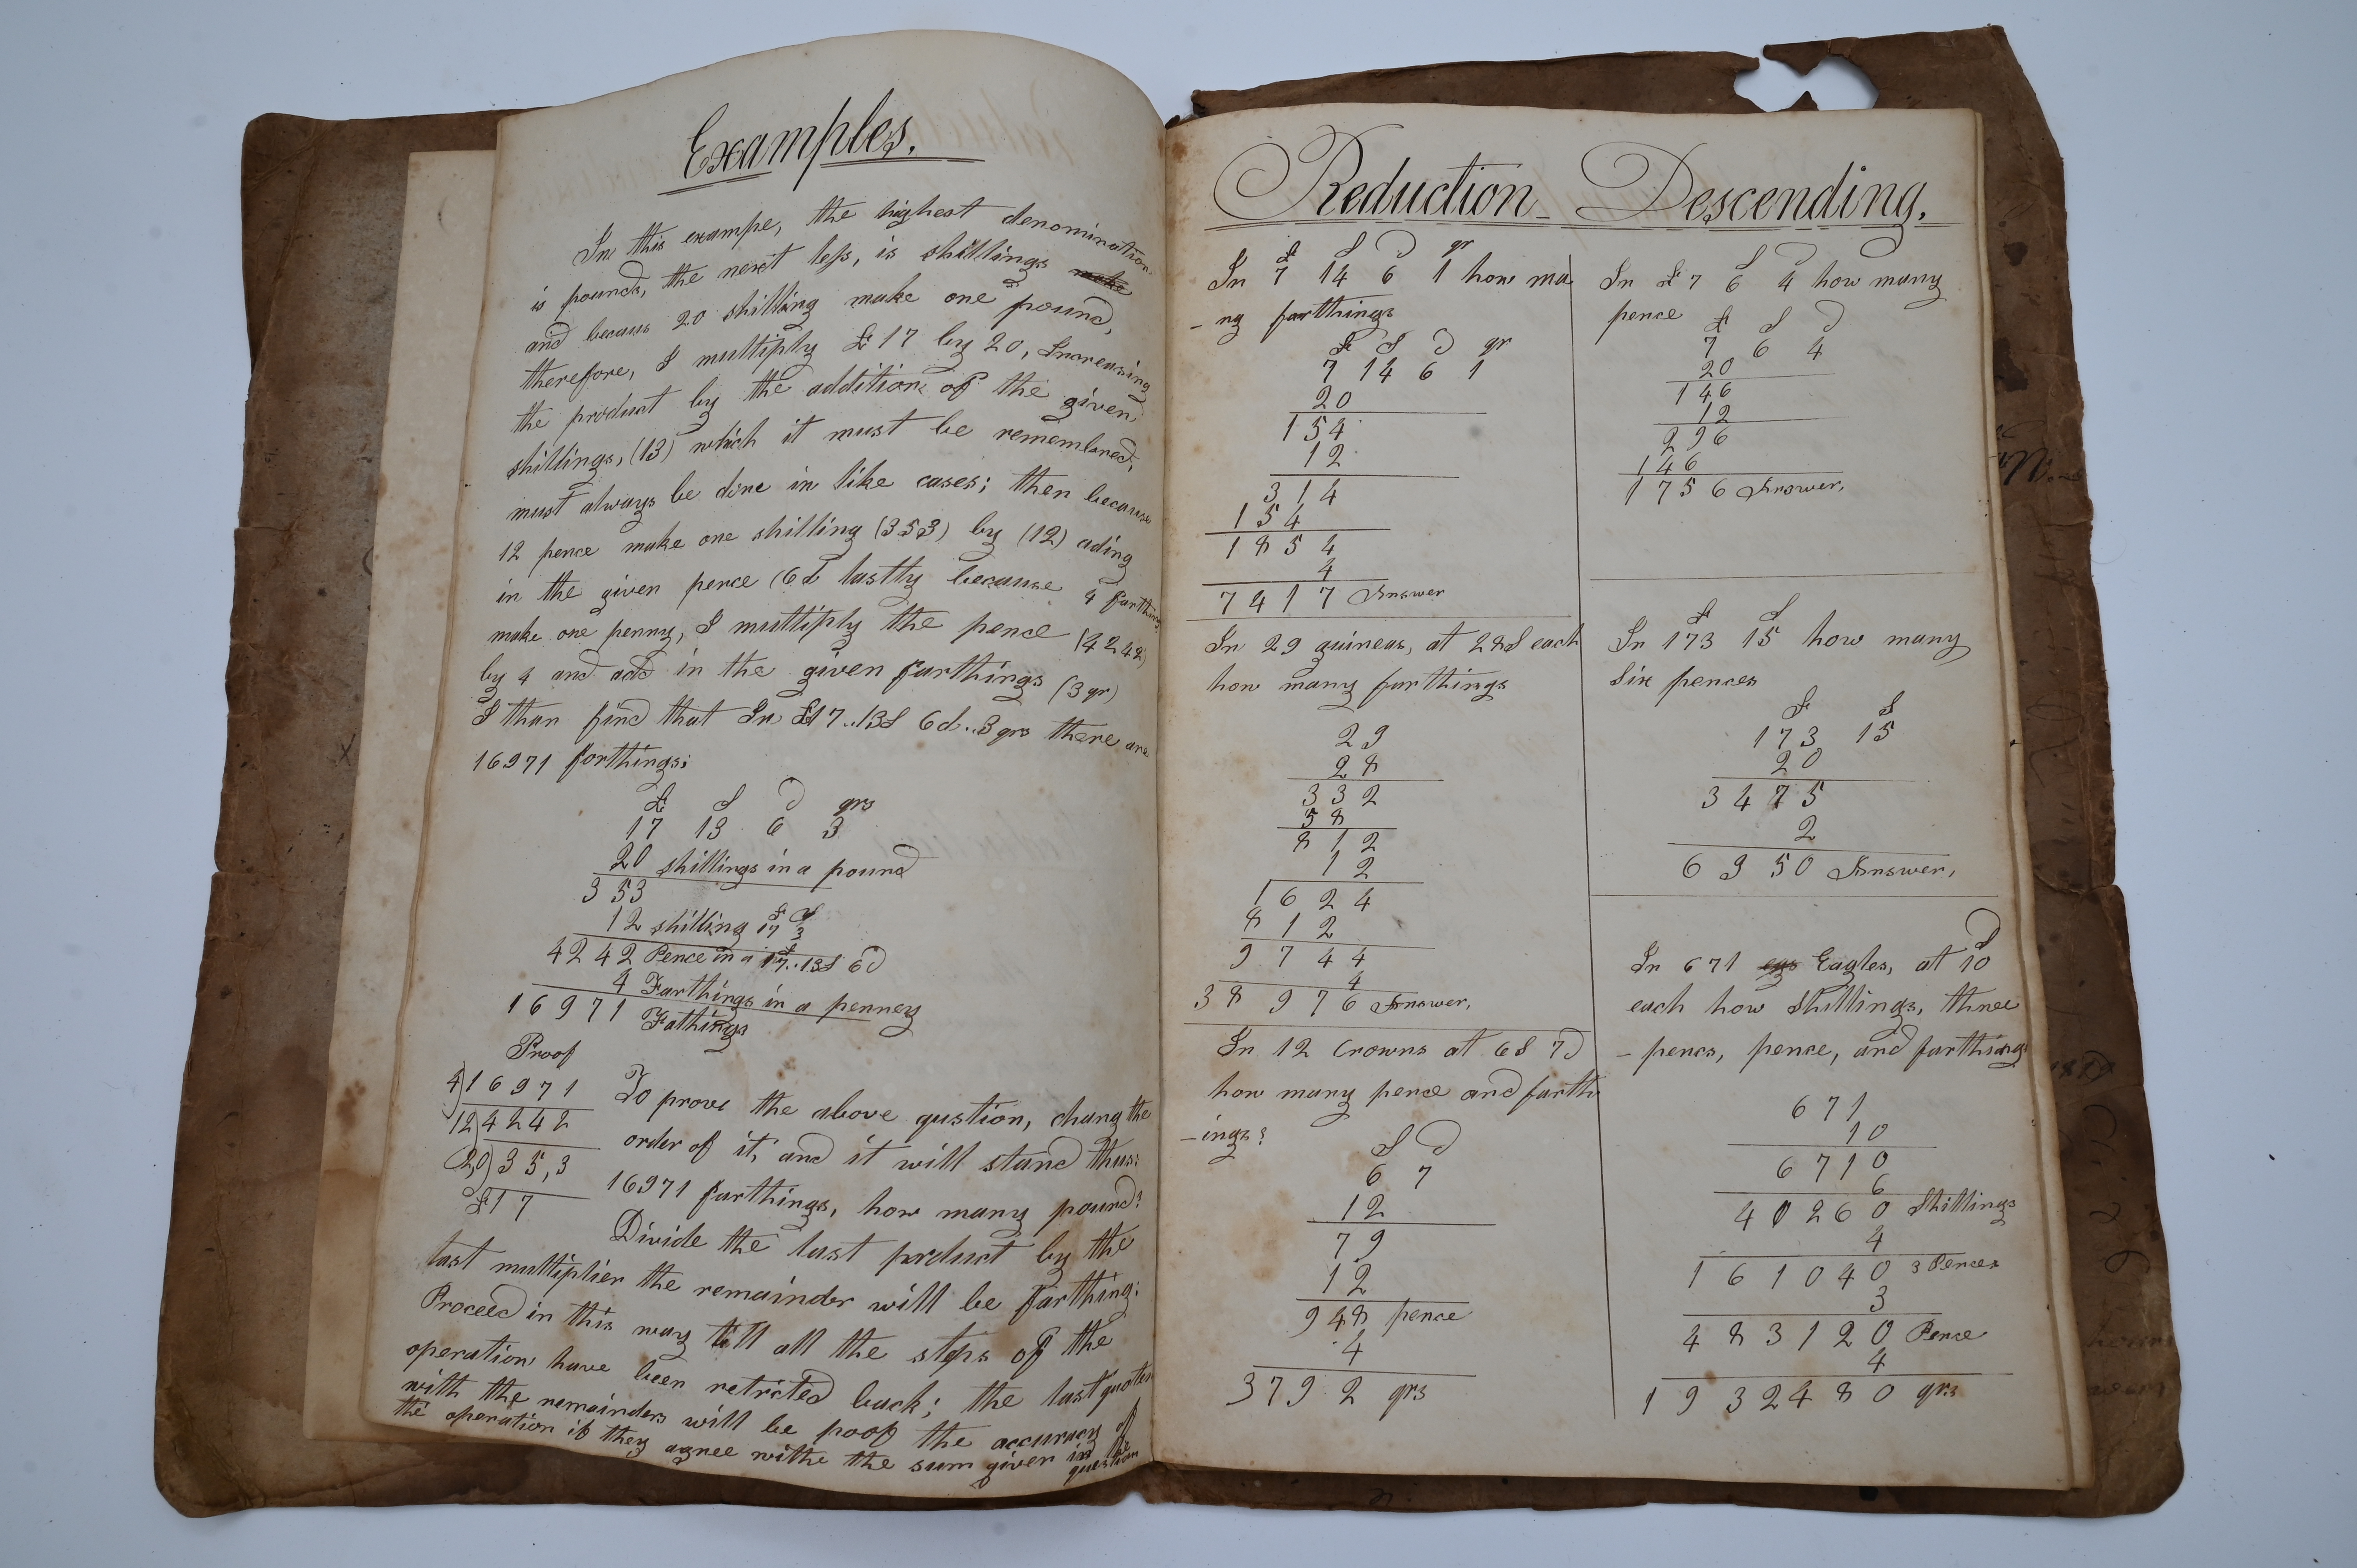 Examples.
In this exampe, the highest denomination
is pounds, the next less, is shillings make
and becaus 20 shilling make one pound,
therefore, I multiply £17 by 20, Increasing
the product by the addition of the given
shillings, (13) which it must be remembred,
must always be done in like cases; then because
12 pence make one shilling (353) by (12) ading
in the given pence (6d lastly because 4 farthings
make one penny, I multiply the pence (4242)
by 4 and add in the given farthings (3 qr)
I than find that In £17..13S 6d..3 qrs there are
16971 forthings;
£ S D qrs
17 13 6 3
20 shillings in a pound
353
12 shilling £17 S3
4242 Pence in a £17..13S 6D
4 Farthings in a penney
16971 Fathings
Proof
4)16971
12)4242
2,0)35,3
£17
To prove the above qustion, chang the
order of it, and it will stand thus:
16971 farthings, how many pound?
Divide the last prduct by the
last multiplier the remainder will be farthing:
Proceed in this way till all the steps of the
operation have been retricted back; the last quoten
with the remainders will be poof the accuracy of
the operation if they agree withe the sum given in the
question
Reduction Descending.
£ S D qr
In 7 14 6 1 how ma
-ny farthings
£ S D qr
7 14 6 1
20
154
12
314
154
1854
4
7417 Answer
In 29 guineas, at 28S each
how many farthings
29
28
332
58
812
12
1624
812
9744
4
38976 Answer,
In 12 Crowns at 6S 7D
how many pence and farth
-ings?
S D
6 7
12
79
12
948 pence
4
3792 qrs
S D
In £7 6 4 how many
pence
£ S D
7 6 4
20
146
12
296
146
1756 Answer,
£ S
In 173 15 how many
Six pences
£ S
173 15
20
3475
2
6950 Answer,
In 671 egs Eagles, at 10D
each how Shillings, three
-pencs, pence, and farthings
671
10
6710
6
40260 Shillings
4
161040 3 Pences
3
483120 Pence
4
1932480 qrs